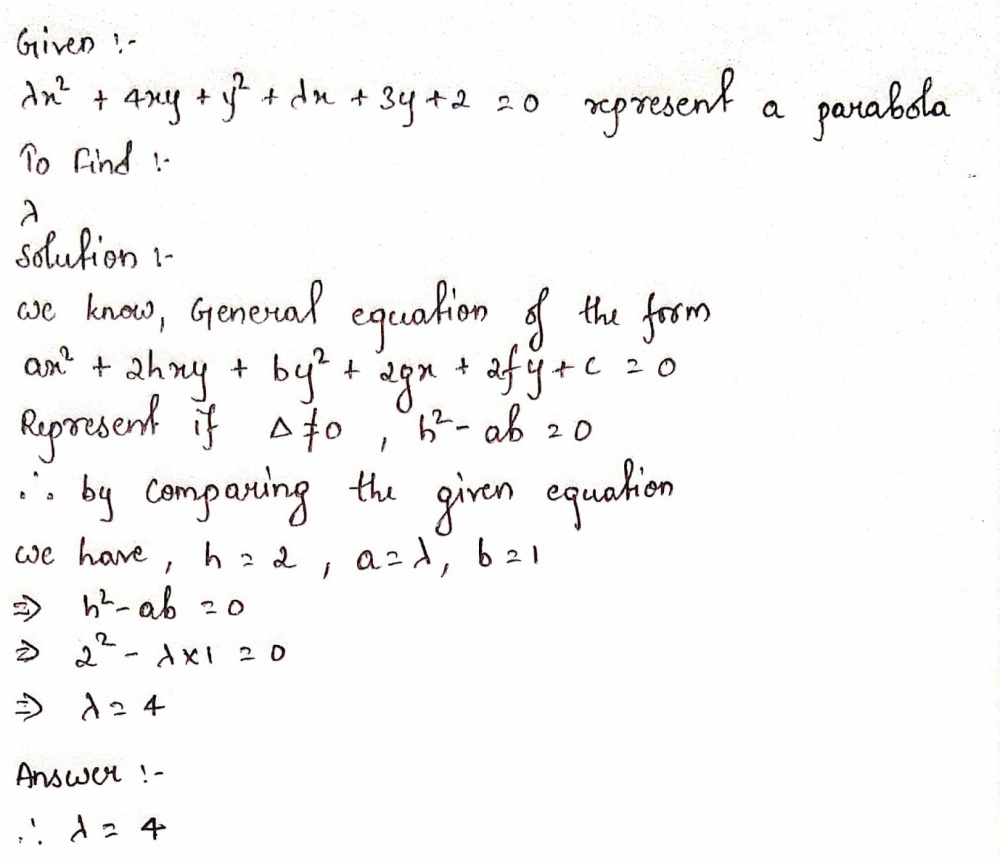 Given :-
λx² + 4xy + y² + λx + 3y + 2 = 0 represent a parabola
To find :-
λ
Solution :-
we know, General equation of the form
ax² + 2hxy + by² + 2gx + 2fy + c = 0
Represent if Δ ≠ 0 , h² - ab = 0
∴ by comparing the given equation
we have , h = 2 , a = λ, b = 1
⇒ h² - ab = 0
⇒ 2² - λ × 1 = 0
⇒ λ = 4
Answer :-
∴ λ = 4